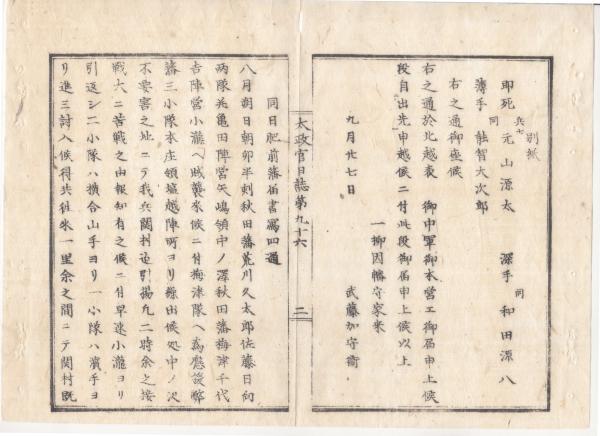 別紙
兵士
即死 元山源太
同
深手 和田源八
同
薄手 能智大次郎
右之通御座候
右之通於北越表 御中軍御本営エ御届申上候
段自出先申越候ニ付此段御届申上候以上
一柳因幡守家来
九月廿七日 武藤加守衛
太政官日誌第九十六 二
同日肥前藩届書写四通
八月朔日朝卯半刻秋田藩荒川久太郎佐藤日向
両隊并亀田陣営矢嶋領中ノ澤秋田藩梅津千代
吉陣営小瀧ヘ賊襲来候ニ付梅津隊ヘ為應援弊
藩三小隊本庄領塩越陣町ヨリ繰出候処中ノ沢
不要害之地ニテ我兵関村迠引揚九二時余之接
戦大ニ苦戦之由報知有之候ニ付早速小瀧ヨリ
引返シ二小隊ハ横合山手ヨリ一小隊ハ濱手ヨ
リ進ミ討入候得共徃来一里余之間ニテ関村既